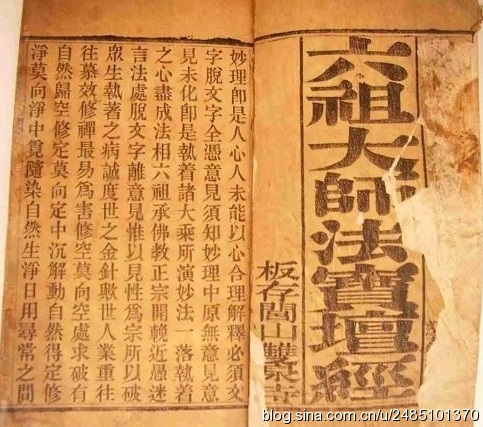 六祖大師法寶壇經
板存閭山雙泉寺
妙理卽是人心人未能以心合理解釋必須文
字脫文字全憑意見須知妙理中原無意見意
見未化卽是執着諸大乘所演妙法一落執着
之心盡成法相六祖承佛教正宗開輓近愚迷
言法處脫文字離意見惟以見性爲宗所以破
衆生執著之病誠度世之金針敷世人業重往
往慕效修禪最易爲害修空莫向空處求破有
自然歸空修定莫向定中沉解動自然得定修
淨莫向淨中覓隨染自然生淨日用尋常之間
blog.sina.com.cn/u/2485101370